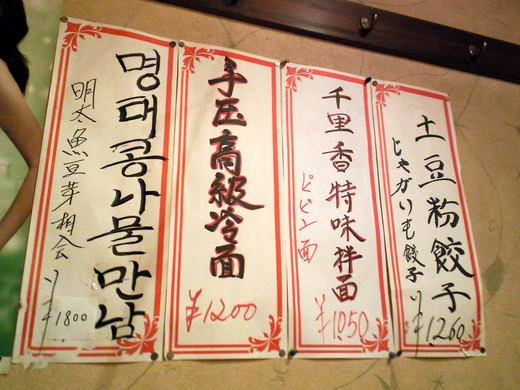 명태콩나물만남
明太魚豆芽相会
¥1800
手压高級冷面
¥1200
千里香特味拌面
ビビン面
¥1050
土豆粉餃子
じゃがいも餃子
¥1260